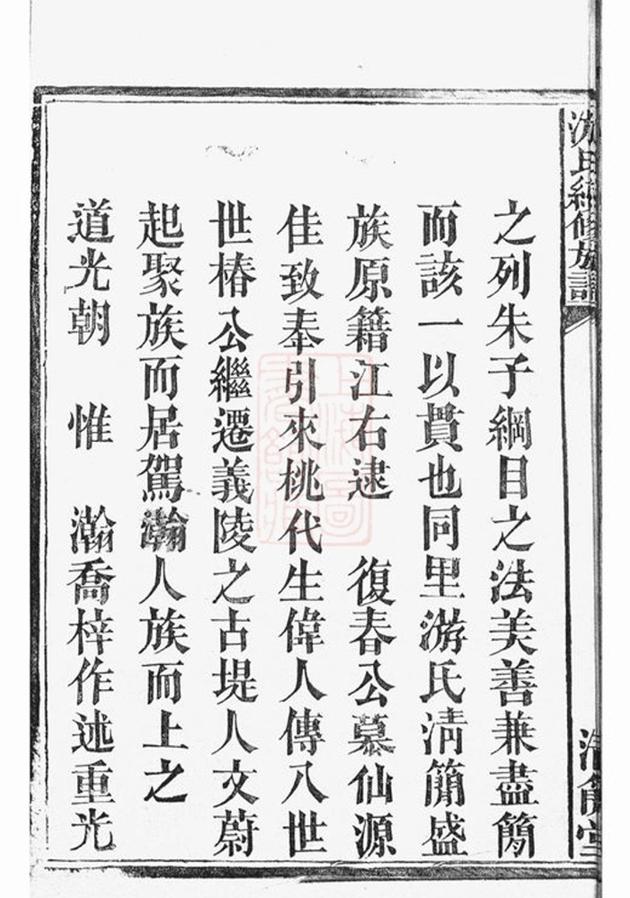 游氏續修族譜
之列朱子綱目之法美善兼盡簡
而該一以貫也同里游氏清簡盛
族原籍江右逮　復春公慕仙源
佳致奉引來桃代生偉人傳八世
世椿公繼遷義陵之古堤人文蔚
起聚族而居駕瀚人族而上之
道光朝　惟　瀚喬梓作述重光